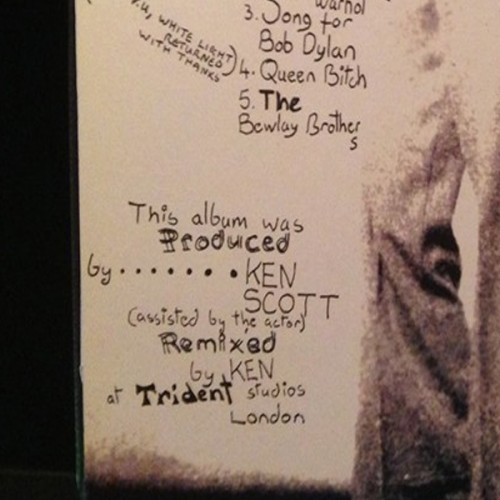 Warhol
3. Song for
Bob Dylan
V.U, WHITE LIGHT
RETURNED
WITH THANKS)
4. Queen Bitch
5. The
Bewlay Brother
s
This album was
Produced
by ....... KEN
SCOTT
(assisted by the actor)
Remixed
by KEN
at Trident studios
London